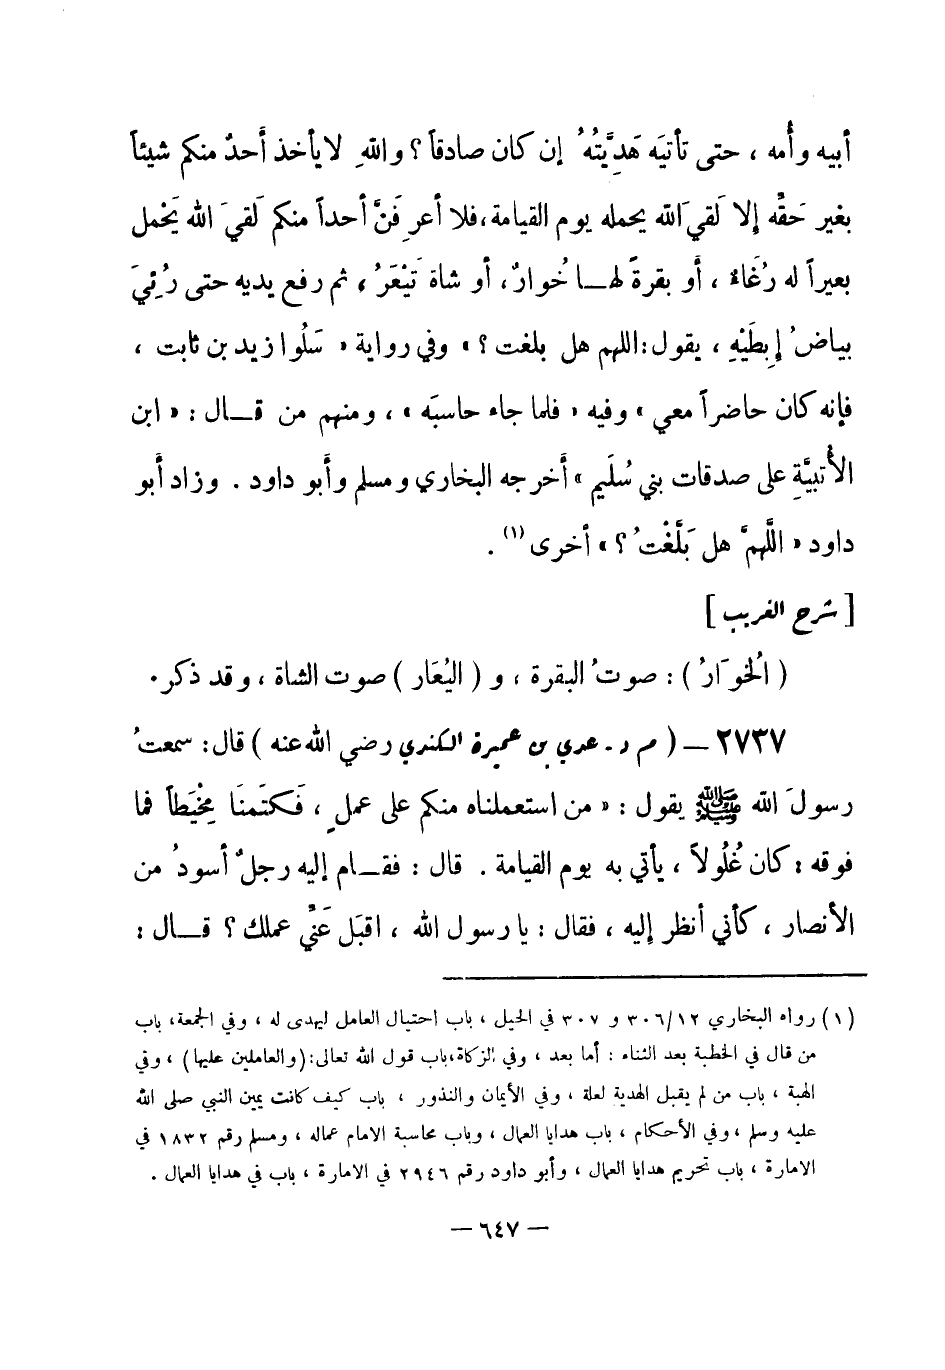 أبيه وأُمه ، حتى تأتيَه هَدِيَّتُهُ إن كان صادقاً ؟ واللهِ لا يأخذ أَحدٌ منكم شيئاً
بغير حَقِّه إلا لَقيَ الله يحمله يوم القيامة ، فلا أعرِفَنَّ أحداً منكم لَقيَ الله يَحْمل
بعيراً له رُغَاءٌ ، أَو بقرةً لهـا خُوارٌ ، أو شاة تَيْعَرُ ، ثم رفع يديه حتى رُئِيَ
بياضُ إِبطَيْهِ ، يقول : اللهم هل بلغت ؟ » وفي رواية « سَلُوا زيد بن ثابت ،
فإنه كان حاضراً معي » وفيه « فلما جاء حاسبَه » ، ومنهم من قـال : « ابن
الأُتبيَّةِ على صدقات بني سُلَيم » أَخرجه البخاري ومسلم وأَبو داود . وزاد أبو
داود « اللَّهمَّ هل بَلَّغْتُ ؟ » أخرى (١) .
[ شرح الغريب ]
( الُخوَارُ ) : صوتُ البقرة ، و ( اليُعَار ) صوت الشاة ، وقد ذكر .
٢٧٣٧ – ( م د - عدي بن عميرة الكندي رضي الله عنه ) قال : سمعتُ
رسولَ الله ﷺ يقول : « من استعملناه منكم على عملٍ ، فَكتَمنَا مِخْيَطاً فما
فوقه : كان غُلُولاً ، يأتي به يوم القيامة . قال : فقـام إليه رجلٌ أسودُ من
الأنصار ، كأني أنظر إليه ، فقال : يا رسول الله ، اقبَل عَنِّي عملك ؟ قـال :
(١) رواه البخاري ٣٠٦/١٢ و ٣٠٧ في الحيل ، باب احتيال العامل ليهدى له ، وفي الجمعة ، باب
من قال في الخطبة بعد الثناء : أما بعد ، وفي الزكاة ، باب قول الله تعالى : ( والعاملين عليها ) ، وفي
الهبة ، باب من لم يقبل الهدية لعلة ، وفي الأيمان والنذور ، باب كيف كانت يمين النبي صلى الله
عليه وسلم ، وفي الأحكام ، باب هدايا العمال ، وباب محاسبة الامام عماله ، ومسلم رقم ١٨٣٢ في
الامارة ، باب تحريم هدايا العمال ، وأبو داود رقم ٢٩٤٦ في الامارة ، باب في هدايا العمال .
– ٦٤٧ –